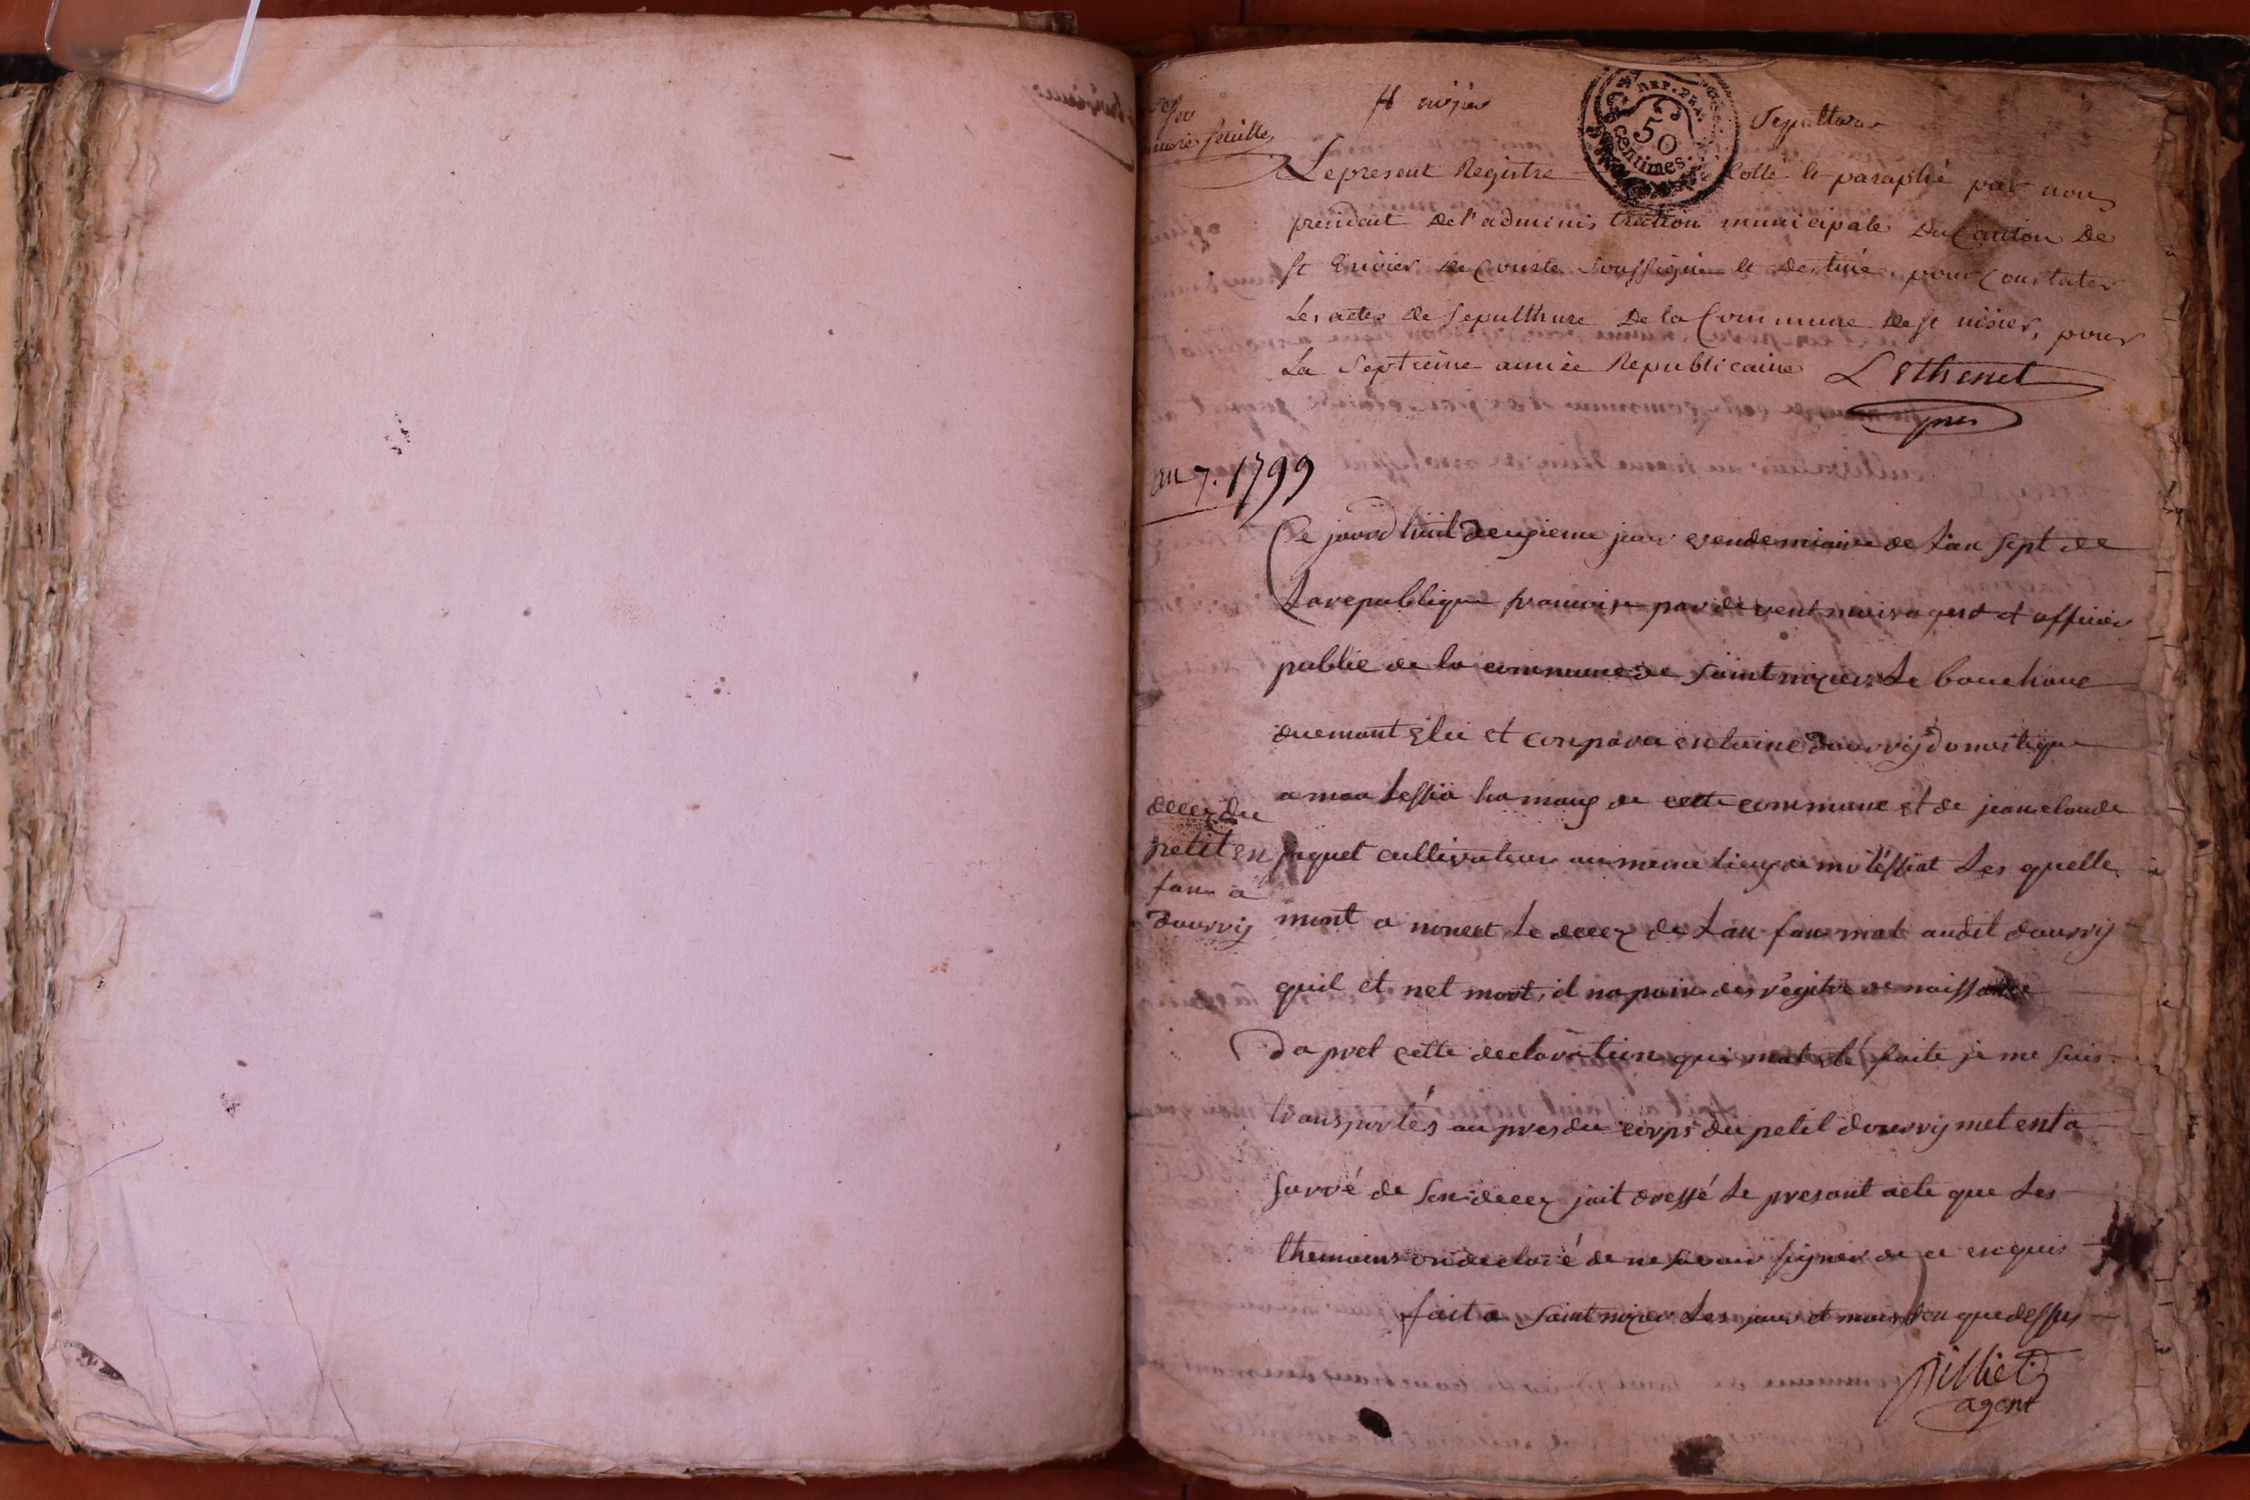 feuille
St nisier
Sepultures
REP. FRA.
50
centimes.
Le present Registre Cotté et paraphé par nous
president de l'administration municipale du Canton de
St trivier de Courte soussigné et destiné pour Constater
Les actes de sepulthure de la Commune de St nisier, pour
La Septieme année Republicaine Lethenet
pres
an 7. 1799
Ce jourd huit deuxieme jour vendemiaire de Lan sept de
La republique francoise par devent mois agent et officier
public de la commune de saint nizier Le bouchoue
duemant élu et conpara entoine douvrij domestique
a moulessia hamaug de cette commune et de jean claude
decez du
petit en
fan a
douvrij
paquet cultivateur au meme lieug de motéssiat Les quelle
mont a nonest Le decez de Lan fan mal audit douvrij
quil et net mort, il na poin des régitre de naissance
da pret cette declaration qui mat eté faite je me suis
transportés au pres du corps du petit douvrij met enta
surré de son decez jait dressé Le presant acte que Les
themoins on declaré de ne savoir signer de ce enquis
fait a saint nizier Les jour et mois dan que dessus
pilliet
agent